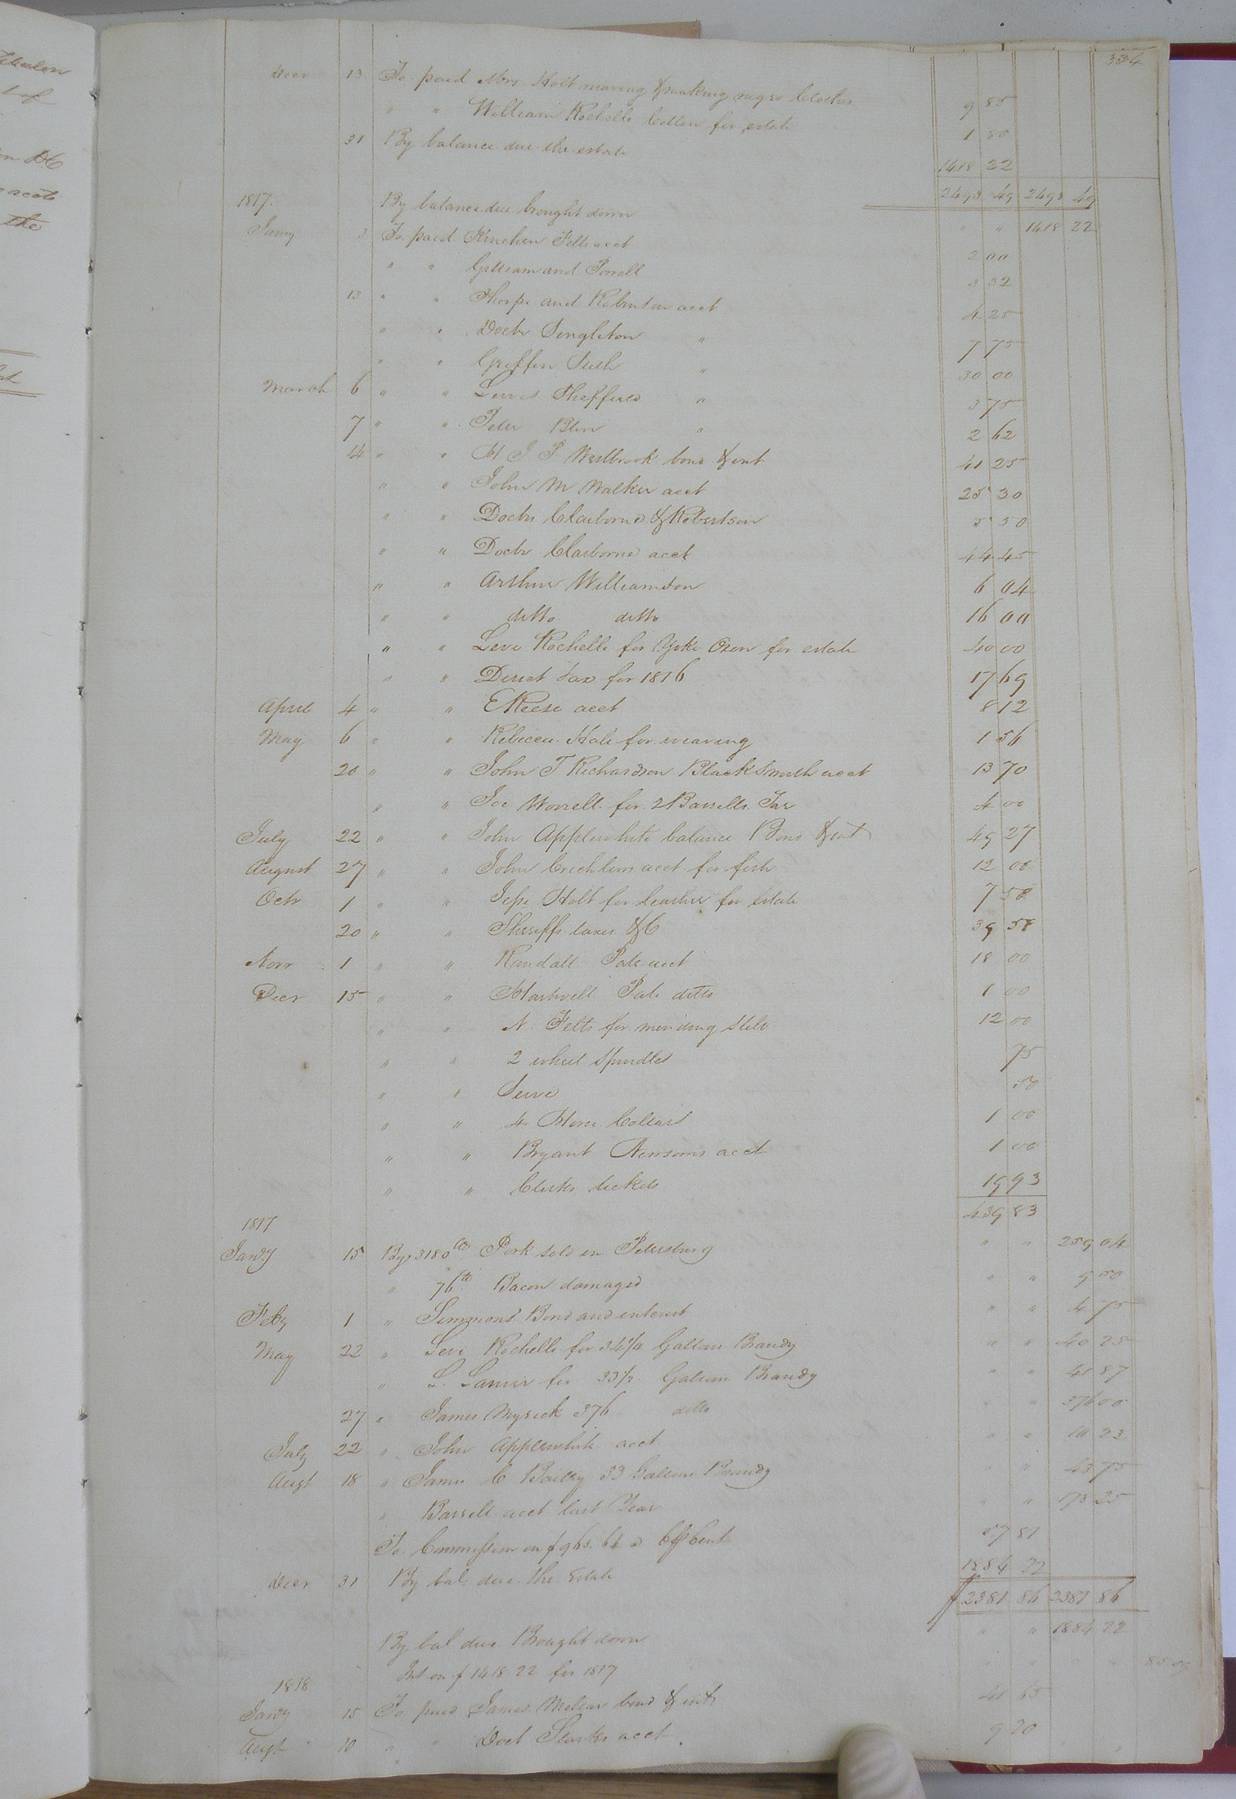 334
Decr 13 To paid Mrs Holt weaving & making negro Clothes 9 85
" " William Rochelle Cotton for estate 1 50
31 By balance due the estate 1418 22
2498 49 2498 49
1817. By balance due brought down " " 1418 22
Jany 3 To paid Kinchen Felts acct 2 00
" " Gilliam and 3 32
13 " " Thorpe and acct 4 25
" " Doctr Singleton " 7 75
" " Griffin " 30 00
March 6 " " Lewis Sheffield " 3 75
7 " " Peter " 2 62
14 " " Westbrook bond & int 41 25
" " John M Walker acct 25 30
" " Doctr Claiborne & Robertson 5 50
" " Doctr Claiborne acct 44 45
" " Arthur Williamson 6 04
" " ditto ditto 16 00
" " Levi Rochelle for Yoke Oxen for estate 40 00
" " Direct tax for 1816 17 69
April 4 " " E Reese acct 8 12
May 6 " " Rebecca for weaving 1 56
20 " " John T Richardson Black Smith acct 13 70
" " Joe Worrell for 2 Barrells Tar 4 00
July 22 " " John Applewhite balance Bond & int 49 27
August 27 " " John Crichlow acct for fish 12 00
Octr 1 " " Jesse Holt for leather for estate 7 58
20 " " Sheriffs taxes &C 39 58
Novr 1 " " Randall Pate acct 18 00
Decr 15 " " Hartwell Pate ditto 1 00
" " N. Felts for mending Still 12 00
" " 2 wheel Spindles 75
" " 50
" " 4 Horse Collars 1 00
" " Bryant Newsoms acct 1 00
" " Clerks tickets 19 93
439 83
1817
Jany 15 By 3180 lb Pork sold in Petersburg " " 259 04
" 76 lb Bacon damaged " " 9 50
Feby 1 " Simmons Bond and interest " " 4 75
May 22 " Levi Rochelle for Gallons Brandy " " 40 25
" L. Lanier for 33 1/2 Gallons Brandy " " 41 87
27 " James Myrick 376 ditto " " 376 00
July 22 " John Applewhite acct " " 10 23
Augt 18 " James C Bailey 33 Gallons Brandy " " 43 75
" Barrell acct last Year " " 173 25
To Commission on $ 963. 64 @ 6 Cent 57 81
Decr 31 By bal due the Estate 1884 22
$ 2381 86 2381 86
By bal due Brought down " " 1884 22
Int on $ 1418 22 for 1817 85 09
1818
Jany 15 To paid James bond & int 41 65
Augt 10 " " Doct acct 9 20